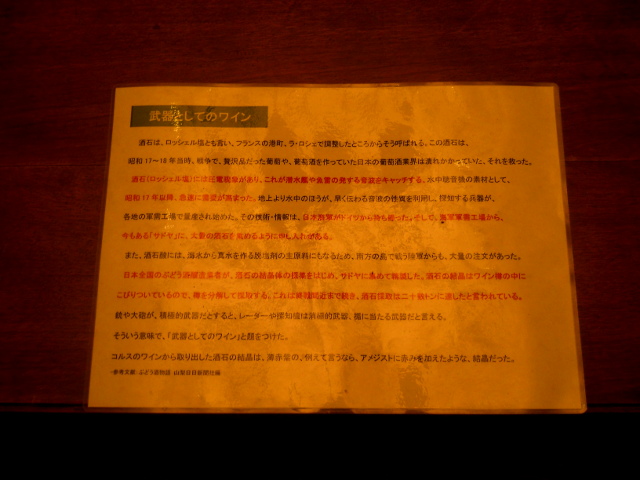 武器としてのワイン
酒石は、ロッシェル塩とも言い、フランスの港町、ラ・ロシェで調整したところからそう呼ばれる。この酒石は、
昭和17〜18年当時、戦争で、贅沢品だった葡萄や、葡萄酒を作っていた日本の葡萄酒業界は潰れかかっていた。それを救った。
酒石(ロッシェル塩)には圧電現象があり、これが潜水艦や魚雷の発する音波をキャッチする、水中聴音機の素材として、
昭和17年以降、急速に需要が高まった。地上より水中のほうが、早く伝わる音波の性質を利用し、探知する兵器が、
各地の軍需工場で量産され始めた。その技術・情報は、日本海軍がドイツから持ち帰った。そして、海軍軍需工場から、
今もある「サドヤ」に、大量の酒石を集めるように申し入れがある。
また、酒石酸には、海水から真水を作る脱塩剤の主原料にもなるため、南方の島で戦う陸軍からも、大量の注文があった。
日本全国のぶどう酒醸造業者が、酒石の結晶体の採集をはじめ、サドヤに集めて精製した。酒石の結晶はワイン樽の中に
こびりついているので、樽を分解して採取する。これは終戦間近まで続き、酒石採取は二千トンに達したと言われている。
銃や大砲が、積極的武器だとすると、レーダーや探知機は消極的武器、楯に当たる武器だと言える。
そういう意味で、「武器としてのワイン」と題をつけた。
コルスのワインから取り出した酒石の結晶は、薄赤紫の、例えて言うなら、アメジストに赤みを加えたような、結晶だった。
・参考文献:ぶどう酒物語 山梨日日新聞社編